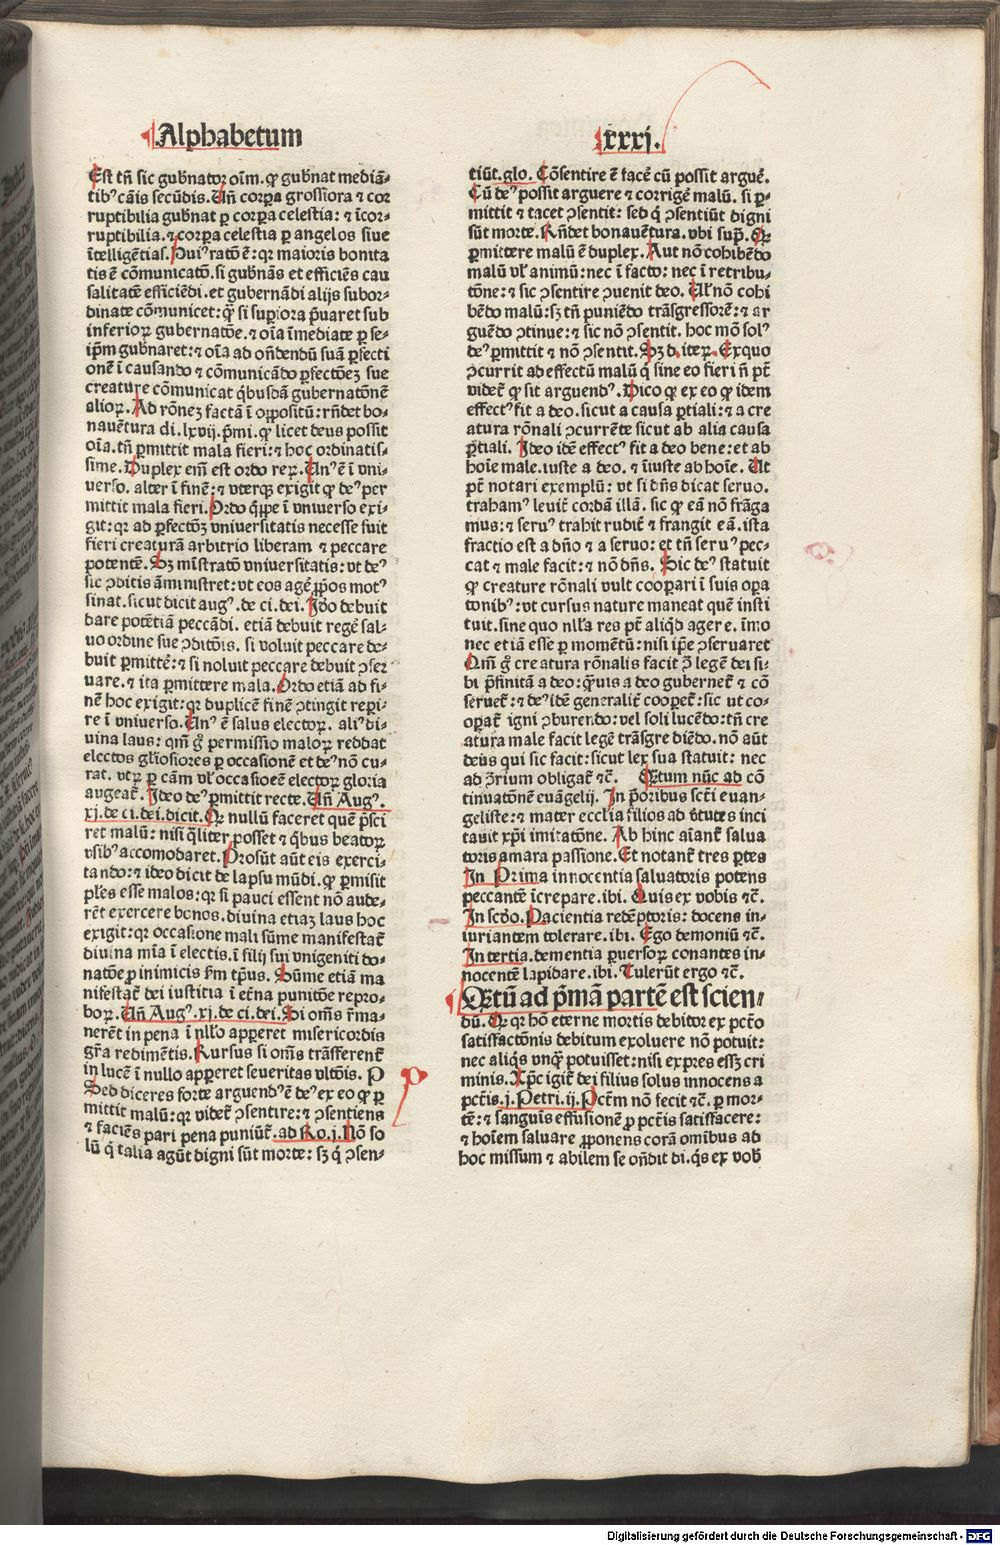 Alphabetum
xxxj.
Est tñ sic gub̃nator oĩm. ꝙ gub̃nat mediã⸗
tibꝰ cãis secũdis. Uñ corꝑa grossiora ⁊ cor
ruptibilia gub̃nat ꝑ corꝑa celestia: ⁊ ĩcor⸗
ruptibilia. ⁊ corꝑa celestia ꝑ angelos siue
ĩtelligẽtias. Huiꝰ ratõ ẽ: qꝛ maioris bonita
tis ẽ cõmunicatõ. si gubnãs et efficiẽs cau
salitatẽ efficiẽdi. et gubernãdi alijs subor⸗
dinate cõmunicet: ꝙ̃ si supiora p̃uaret sub
inferioꝝ gubernatõe. ⁊ oĩa ĩmediate ꝑ se⸗
ip̃m gub̃naret: ⁊ oĩa ad oñdendũ suã ꝑfecti
onẽ ĩ causando ⁊ cõmunicãdo ꝑfectõeʒ sue
creature cõmunicat q̃busdã gubernatõnẽ
alioꝝ. Ad rõneʒ factã ĩ oꝓpositũ: rñdet bo⸗
nauẽtura di. lxvij. p̃mi. ꝙ licet deus possit
oĩa. tñ ꝑmittit mala fieri: ⁊ hoc ordinatis⸗
sime. Duplex em̃ est ordo reꝝ. Unꝰ ẽ ĩ vni⸗
uerso. alter ĩ finẽ: ⁊ vterqꝫ exigit ꝙ deꝰ ꝑer
mittit mala fieri. Ordo q̃ppe ĩ vniuerso exi⸗
git: qꝛ ad ꝑfectõʒ vniuersitatis necesse fuit
fieri creaturã arbitrio liberam ⁊ peccare
potentẽ. Sʒ mĩstratõ vniuersitatis: vt deꝰ
sic ꝯditis ãministret: vt eos agẽ ꝓprios motꝰ
sinat. sicut dicit augꝰ. de ci. dei. Jõo debuit
dare potẽtiã peccãdi. etiã debuit regẽ sal⸗
uo ordine sue ꝯditõis. si voluit peccare de⸗
buit ꝑmittẽ: ⁊ si noluit peccare debuit ꝯser
uare. ⁊ ita ꝑmittere mala. Ordo etiã ad fi⸗
nẽ hoc exigit: qꝛ duplicẽ finẽ ꝯtingit reꝑi⸗
re ĩ vniuerso. Unꝰ ẽ salus electoꝝ. aliꝰ di⸗
uina laus: qm̃ g̊ permissio maloꝝ reddat
electos gl̃iosiores ꝑ occasionẽ et deꝰ nõ cu⸗
rat. vtꝝ ꝑ cãm vl̃ occasioẽ electoꝝ gloria
augeat᷑. Jdeo deꝰ ꝑmittit recte. Uñ Augꝰ.
xj. de ci. dei. dicit. Qꝛ nullũ faceret quẽ p̃sci
ret malũ: nisi q̃liter posset ⁊ q̃bus beatoꝝ
vsibꝰ accomodaret. Prosũt aũt eis exerci⸗
tando: ⁊ ideo dicit de lapsu mũdi. ꝙ ꝑmisit
ples esse malos: qꝛ si pauci essent nõ aude⸗
rẽt exercere bonos. diuina etiaʒ laus hoc
exigit: qꝛ occasione mali sũme manifestat᷑
diuina mĩa ĩ electis. ĩ filij sui vnigeniti do⸗
natõe ꝓ inimicis fm tp̃us. Sũme etiã ma
nifestat᷑ dei iustitia ĩ et̃na punitõe repro⸗
boꝝ. Uñ Augꝰ. xj. de ci. dei. Si om̃s r̃ma⸗
nerẽt in pena ĩ nl̃lo apperet misericordis
gr̃a redimẽtis. Rursus si om̃s trãsferent᷑
in lucẽ ĩ nullo apꝑeret seueritas vltõis. P
Sed diceres forte arguendꝰ ẽ deꝰ ex eo ꝙ ꝑ
mittit malũ: qꝛ videt᷑ ꝯsentire: ⁊ ꝯsentiens
⁊ faciẽs pari pena puniũt᷑. ad Ro. j. Nõ so
lũ q̃ talia agũt digni sũt morte: sʒ q̃ ꝯsen⸗
tiũt. glo. Cõsentire ẽ facẽ cũ possit arguẽ.
Cũ deꝰ possit arguere ⁊ corrigẽ malũ. si ꝑ⸗
mittit ⁊ tacet ꝯsentit: sed q̃ ꝯsentiũt digni
sũt morte. Rñdet bonauẽtura. vbi supͣ. Qꝛ
ꝑmittere malũ ẽ duplex. Aut nõ cohibẽdo
malũ vl̃ animũ: nec ĩ facto: nec ĩ retribu⸗
tõne: ⁊ sic ꝯsentire ꝯuenit deo. Ul̃ nõ cohi
bẽdo malũ: sʒ tñ puniẽdo trãsgressorẽ: ⁊ ar
guẽdo ꝯtinue: ⁊ sic nõ ꝯsentit. hoc mõ solꝰ
deꝰ ꝑmittit ⁊ nõ ꝯsentit. Sʒ d. iteꝝ. Exquo
ꝯcurrit ad effectũ malũ q̃ sine eo fieri ñ pt᷑
videt᷑ ꝙ sit arguendꝰ. Dico ꝙ ex eo ꝙ idem
effectꝰ fit a deo. sicut a causa ꝑtiali: ⁊ a cre
atura rõnali ꝯcurrẽte sicut ab alia causa
ꝑtiali. Jdeo idẽ effectꝰ fit a deo bene: et ab
hoĩe male. iuste a deo. ⁊ ĩiuste ab hoĩe. Ut
pt᷑ notari exemplũ: vt si dñs dicat seruo.
trahamꝰ leuit᷑ cordã illã. sic ꝙ eã nõ frãga
mus: ⁊ seruꝰ trahit rudit᷑ ⁊ frangit eã. ista
fractio est a dño ⁊ a seruo: et tñ seruꝰ pec⸗
cat ⁊ male facit: ⁊ nõ dñs. Sic deꝰ statuit
ꝙ creature rõnali vult cooꝑari ĩ suis oꝑa
tonibꝰ: vt cursus nature maneat quẽ insti
tuit. sine quo nl̃la res pt᷑ aliq̃d agere. ĩmo
nec etiã esse ꝑ momẽtũ: nisi ip̃e ꝯseruaret
Qm̃ g̊ creatura rõnalis facit ꝯ̃ legẽ dei si⸗
bi p̃finitã a deo: q̃uis a deo gubernet᷑ ⁊ cõ
seruet᷑: ⁊ deꝰ idẽ generalit᷑ cooꝑet᷑: sic vt co⸗
oꝑat᷑ igni ꝯburendo: vel soli lucẽdo: tñ cre
atura male facit legẽ trãsgrediẽdo. nõ aũt
deus qui sic facit: sicut lex sua statuit: nec
ad ꝯ̃rium obligat᷑ ⁊c̃. Qz̃tum nũc ad cõ
tinuatõnẽ euãgelij. In p̃oribus sct̃i euan⸗
geliste: ⁊ mater ecclia filios ad v̓tutes inci
tauit xp̃i imitatõne. Ab hinc aĩant᷑ salua
toris amara passiõne. Et notant᷑ tres ꝑtes
In Prima innocentia saluatoris potens
peccantẽ ĩcrepare. ibi. Quis ex vobis ⁊c̃.
In scðo. Pacientia redẽptoris: docens in⸗
iuriantem tolerare. ibi. Ego demoniũ ⁊c̃.
In tertia. dementia ꝑuersoꝝ conantes in⸗
nocentẽ lapidare. ibi. Tulerũt ergo ⁊c̃.
Qz̃tũ ad p̃mã partẽ est scien⸗
dũ. Qꝛ qꝛ hõ eterne mortis debitor ex pctõ
satisfactõnis debitum exoluere nõ potuit:
nec aliq̃s vnq̃ potuisset: nisi exꝑes essʒ cri
minis. Xp̃c igit᷑ dei filius solus innocens a
pctis. j. Petri. ij. Pctm̃ nõ fecit ⁊c̃. ꝑ mor⸗
tẽ: ⁊ sanguĩs effusionẽ ꝓ pctis satisfacere:
⁊ hoĩem saluare ꝓponens corã omĩbus ad
hoc missum ⁊ abilem se oñdit di. q̃s ex vob̃
Digitalisierung gefördert durch die Deutsche Forschungsgemeinschaft - DFG